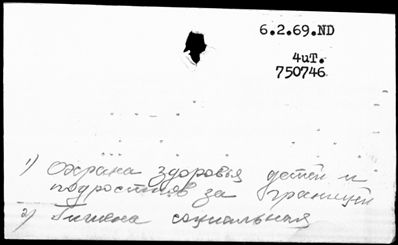 6.2.69.ND
4иТ.
750746
1) Охрана здоровья детей и
подростков за границей
2) Гигиена социальная